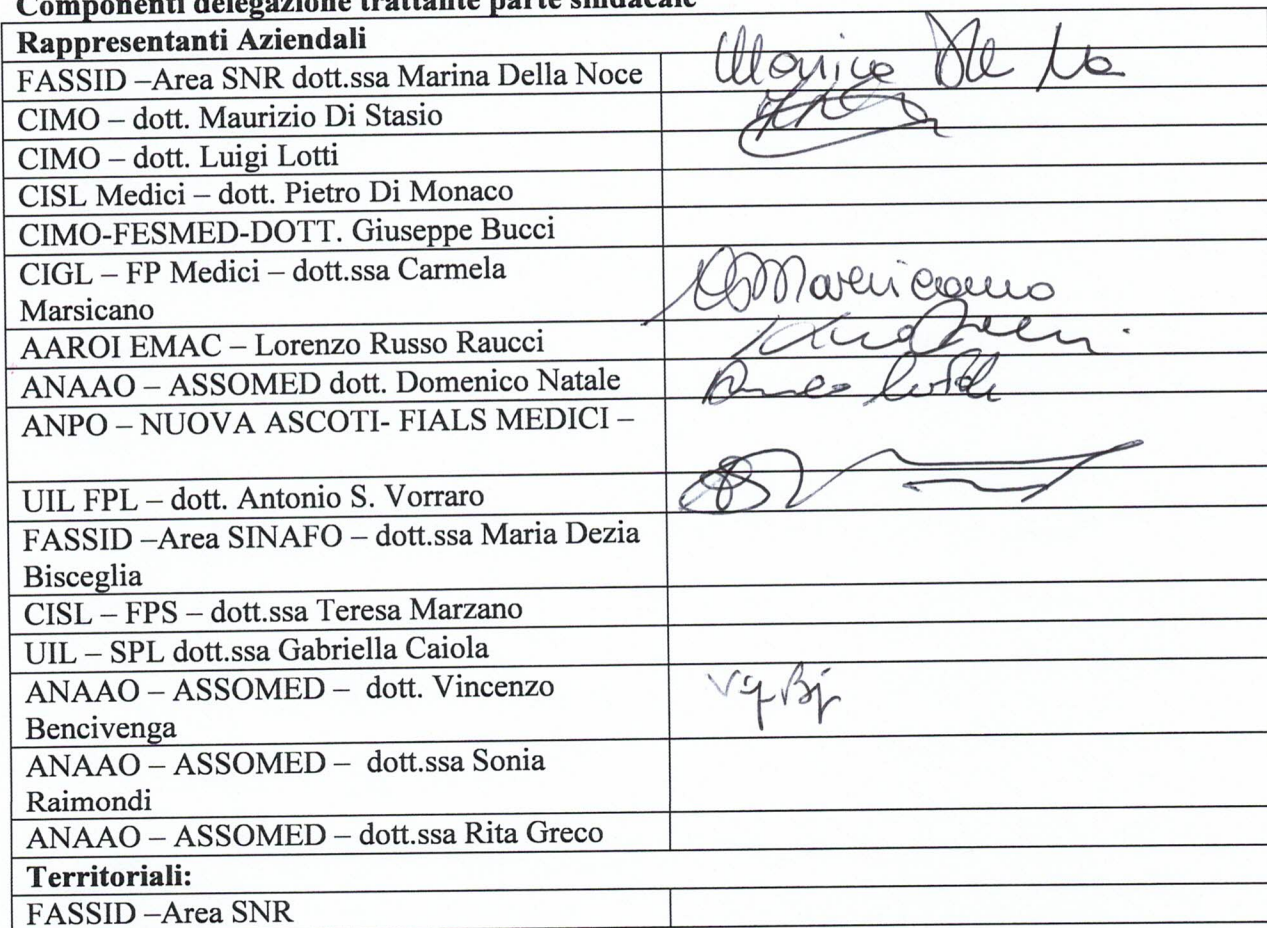 Componenti delegazione trattante parte sindacale
Rappresentanti Aziendali
FASSID –Area SNR dott.ssa Marina Della Noce
CIMO – dott. Maurizio Di Stasio
CIMO – dott. Luigi Lotti
CISL Medici – dott. Pietro Di Monaco
CIMO-FESMED-DOTT. Giuseppe Bucci
CIGL – FP Medici – dott.ssa Carmela
Marsicano
AAROI EMAC – Lorenzo Russo Raucci
ANAAO – ASSOMED dott. Domenico Natale
ANPO – NUOVA ASCOTI- FIALS MEDICI –
UIL FPL – dott. Antonio S. Vorraro
FASSID –Area SINAFO – dott.ssa Maria Dezia
Bisceglia
CISL – FPS – dott.ssa Teresa Marzano
UIL – SPL dott.ssa Gabriella Caiola
ANAAO – ASSOMED – dott. Vincenzo
Bencivenga
ANAAO – ASSOMED – dott.ssa Sonia
Raimondi
ANAAO – ASSOMED – dott.ssa Rita Greco
Territoriali:
FASSID –Area SNR